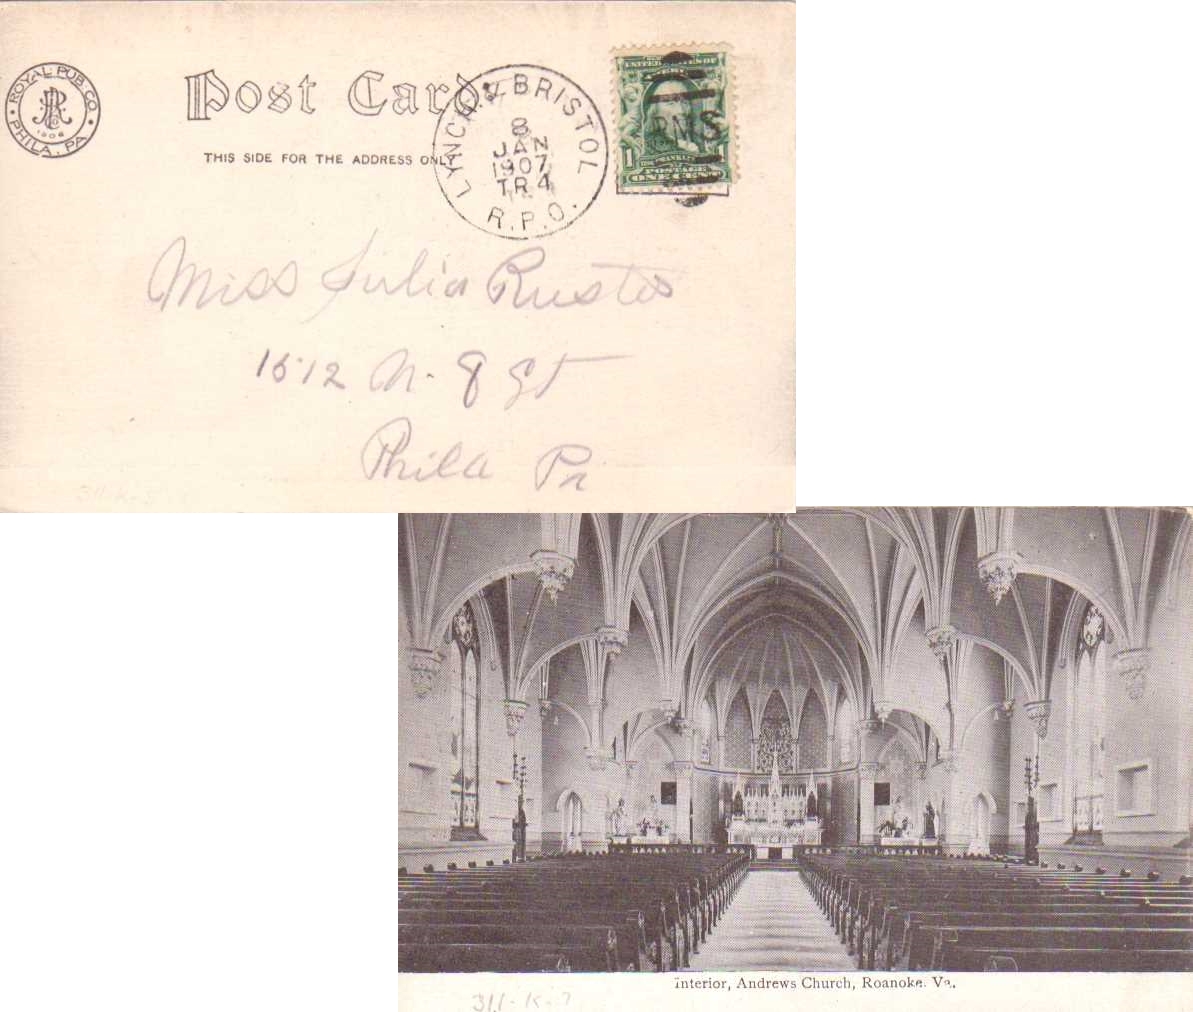 ROYAL PUB. CO
1906
PHILA. PA
Post Card
THIS SIDE FOR THE ADDRESS ONLY
LYNCH. & BRISTOL
8
JAN
1907
TR 4
R.P.O.
UNITED STATES OF
RMS
1 FRANKLIN 1
POSTAGE
ONE CENT
Miss Julia Rustes
1512 N. 8 St
Phila Pa
311-K-
Interior, Andrews Church, Roanoke, Va.
311-K-7